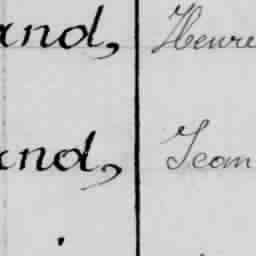 and, Henre
and, Jean